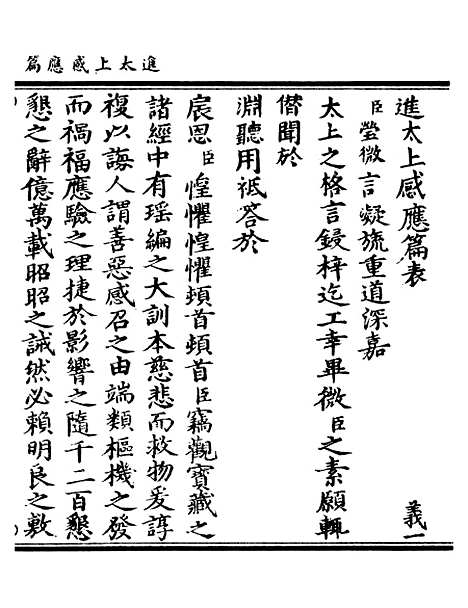 進太上感應篇
進太上感應篇表 義一
臣瑩微言凝旒重道深嘉
太上之格言鋟梓迄工幸畢微臣之素願輙
僣聞於
淵聽用祗答於
宸恩臣惶懼惶懼頓首頓首臣竊觀寶藏之
諸經中有瑤編之大訓本慈悲而救物爰諄
複以誨人謂善惡感召之由端類樞機之發
而禍福應驗之理捷於影響之隨千二百懇
懇之辭億萬載昭昭之誡然必賴明良之敷